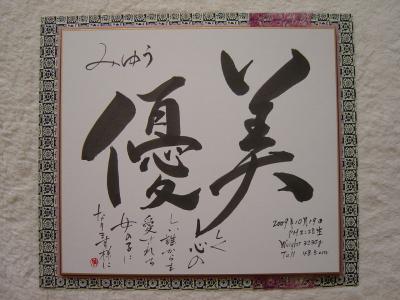 みゆう
美
しく心の
優
しい誰からも
愛される
女の子に
なります様に
2009年10月19日
PM 2:28 生
Weight 3230g
Tall 48.5cm